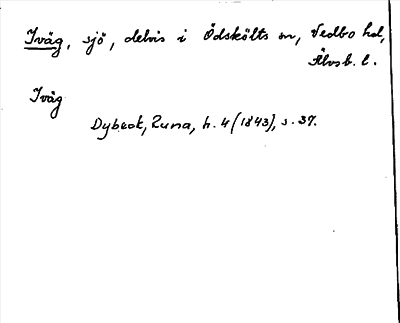 Iväg, sjö, delvis i Ödskölts sn, Vedbo hd,
Älvsb. l.
Iväg
Dybeck, Runa, h. 4 (1843), s. 37.